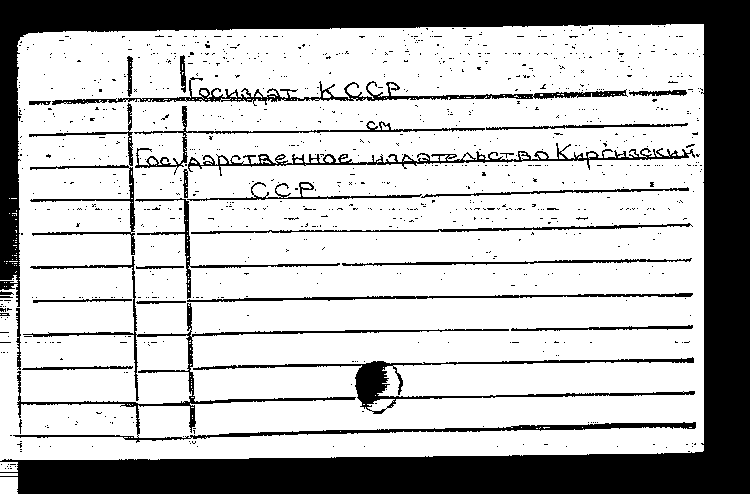 Госиздат КССР
см
Государственное издательство Киргизский
ССР